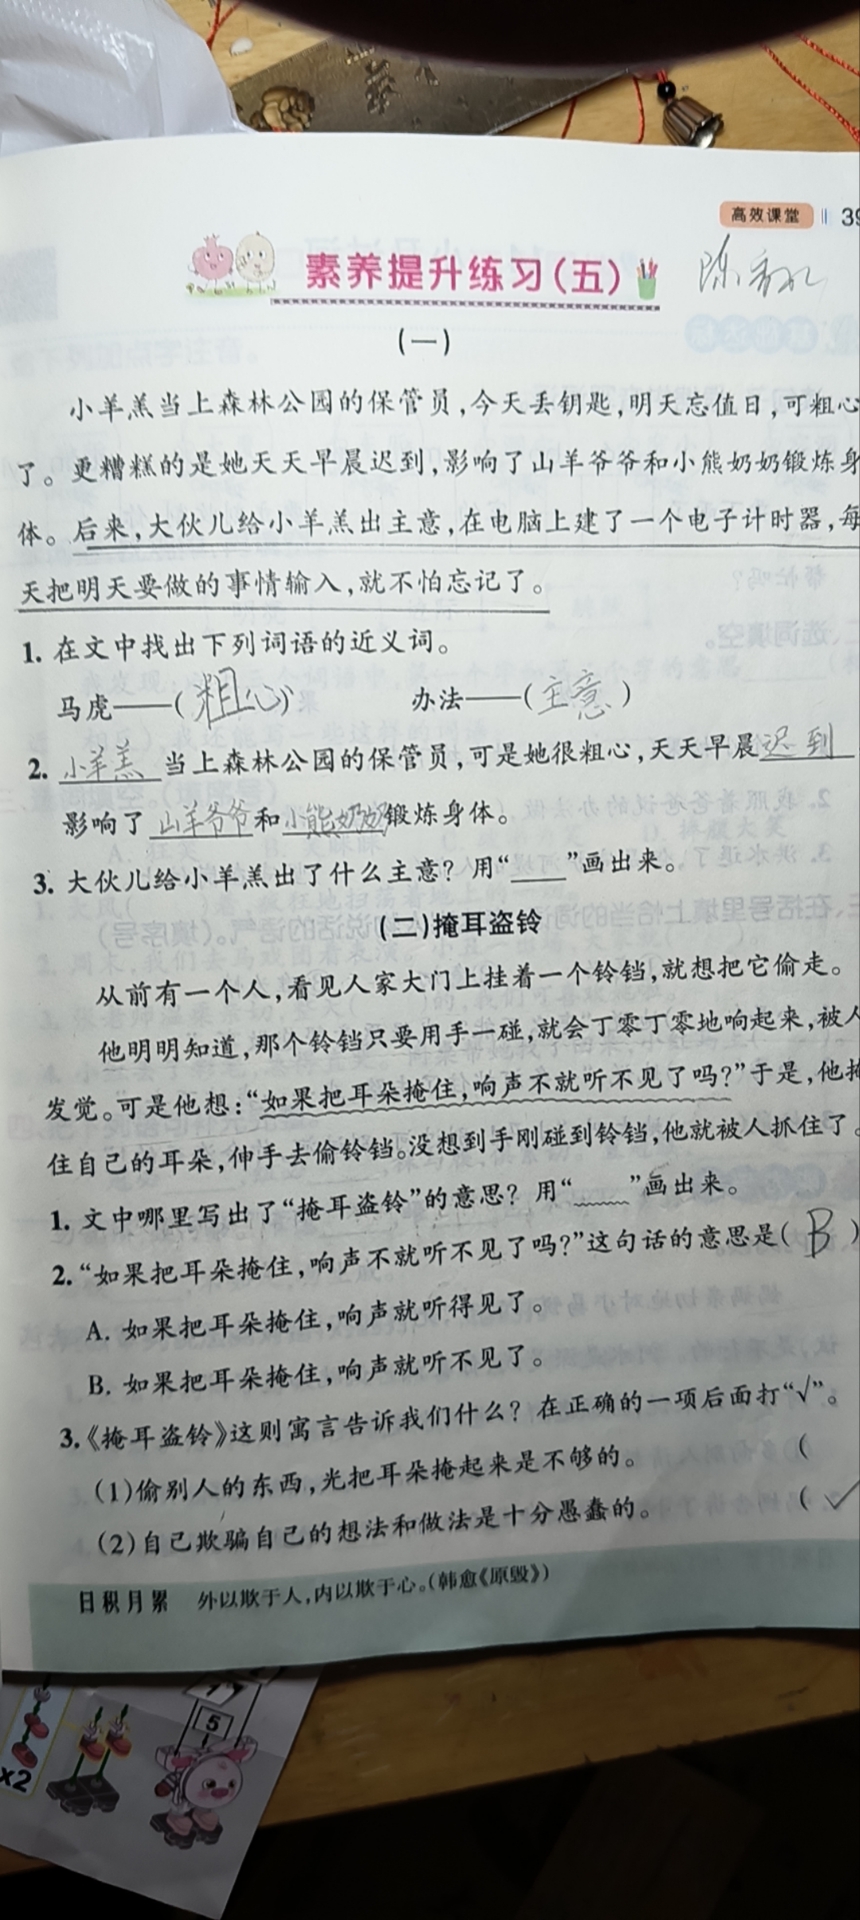 高效课堂 39
素养提升练习(五)
(一)
小羊羔当上森林公园的保管员,今天丢钥匙,明天忘值日,可粗心
了。更糟糕的是她天天早晨迟到,影响了山羊爷爷和小熊奶奶锻炼身
体。后来,大伙儿给小羊羔出主意,在电脑上建了一个电子计时器,每
天把明天要做的事情输入,就不怕忘记了。
1. 在文中找出下列词语的近义词。
马虎——(粗心) 办法——(主意)
2. 小羊羔当上森林公园的保管员,可是她很粗心,天天早晨迟到
影响了山羊爷爷和小熊奶奶锻炼身体。
3. 大伙儿给小羊羔出了什么主意？用“____”画出来。
(二)掩耳盗铃
从前有一个人,看见人家大门上挂着一个铃铛,就想把它偷走。
他明明知道,那个铃铛只要用手一碰,就会丁零丁零地响起来,被人
发觉。可是他想:“如果把耳朵掩住,响声不就听不见了吗?”于是,他掩
住自己的耳朵,伸手去偷铃铛。没想到手刚碰到铃铛,他就被人抓住了。
1. 文中哪里写出了“掩耳盗铃”的意思？用“﹏﹏”画出来。
2. “如果把耳朵掩住,响声不就听不见了吗?”这句话的意思是( B )
A. 如果把耳朵掩住,响声就听得见了。
B. 如果把耳朵掩住,响声就听不见了。
3.《掩耳盗铃》这则寓言告诉我们什么？在正确的一项后面打“√”。
(1)偷别人的东西,光把耳朵掩起来是不够的。 (
(2)自己欺骗自己的想法和做法是十分愚蠢的。 ( ✓
日积月累 外以欺于人,内以欺于心。(韩愈《原毁》)
5
x2